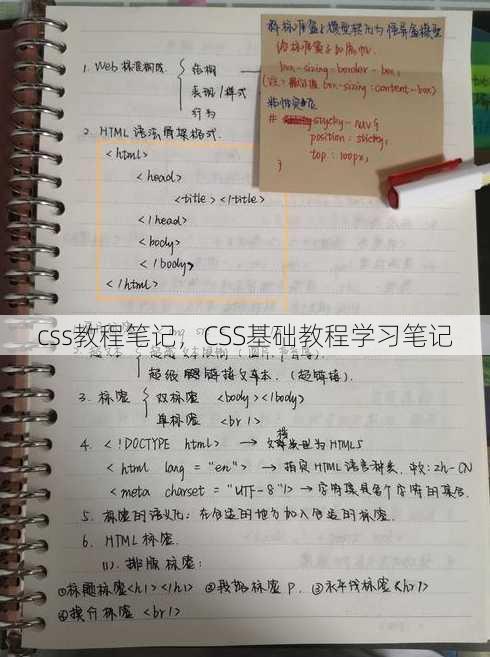 将标准盒子模型转为怪异盒模型
给标准盒子加属性.
box-sizing: border-box;
(注: 默认值 box-sizing: content-box)
粘性定位
# stycky-nav {
position: sticky;
top: 100px;
}
1. Web 标准构成. 结构
表现/样式
行为
2. HTML 语法骨架格式.
<html>
<head>
<title> </title>
</head>
<body>
</body>
</html>
css教程笔记，CSS基础教程学习笔记
超级链接文本. (超链接).
3. 标签 双标签 <body></body>
单标签 <br/>
4. <!DOCTYPE html> → 文档类型为HTML5
<html lang = "en"> → 指定HTML语言种类, 中文: zh-CN
<meta charset = "UTF-8"/> → 字符集是各个字符的集合.
5. 标签的语义化: 在合适的地方加入合适的标签.
6. HTML标签.
(1). 排版标签:
①标题标签<h1></h1> ②段落标签 P. ③水平线标签<hr/>
④换行标签 <br/>